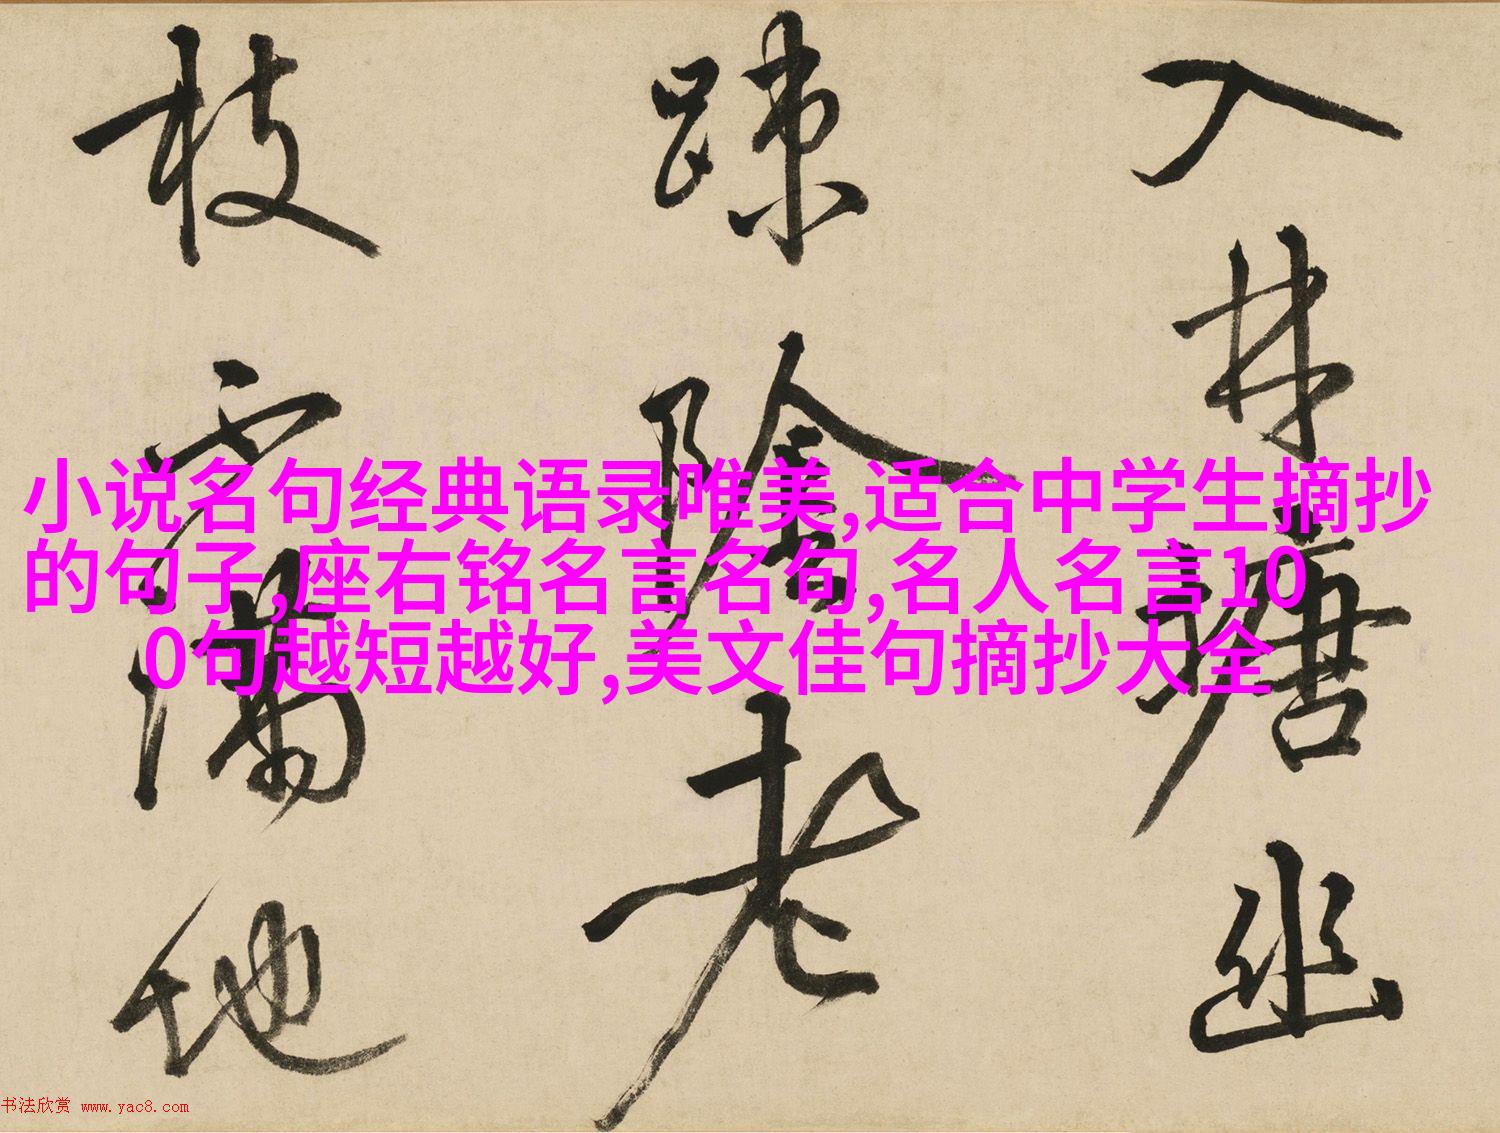 入林塘幽
踈陰老
枝滿地
小说名句经典语录唯美,适合中学生摘抄
的句子,座右铭名言名句,名人名言10
0句越短越好,美文佳句摘抄大全
书法欣赏 www.yac8.com